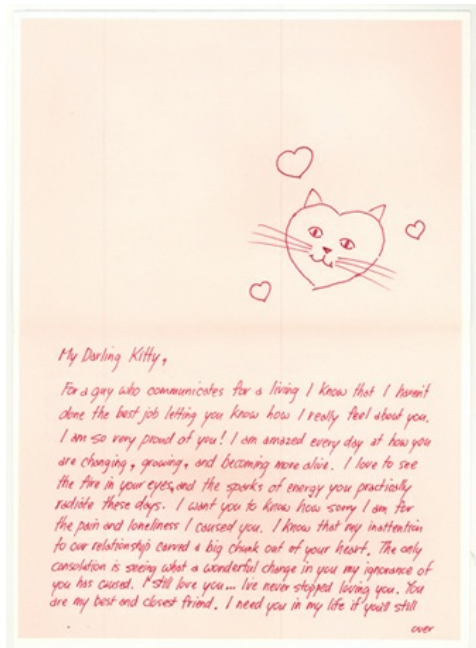 My Darling Kitty,
For a guy who communicates for a living I know that I haven't
done the best job letting you know how I really feel about you.
I am so very proud of you! I am amazed every day at how you
are changing, growing, and becoming more alive. I love to see
the fire in your eyes, and the sparks of energy you practically
radiate these days. I want you to know how sorry I am for
the pain and loneliness I caused you. I know that my inattention
to our relationship carved a big chunk out of your heart. The only
consolation is seeing what a wonderful change in you my ignorance of
you has caused. I still love you... I've never stopped loving you. You
are my best and closest friend. I need you in my life if you'll still
over